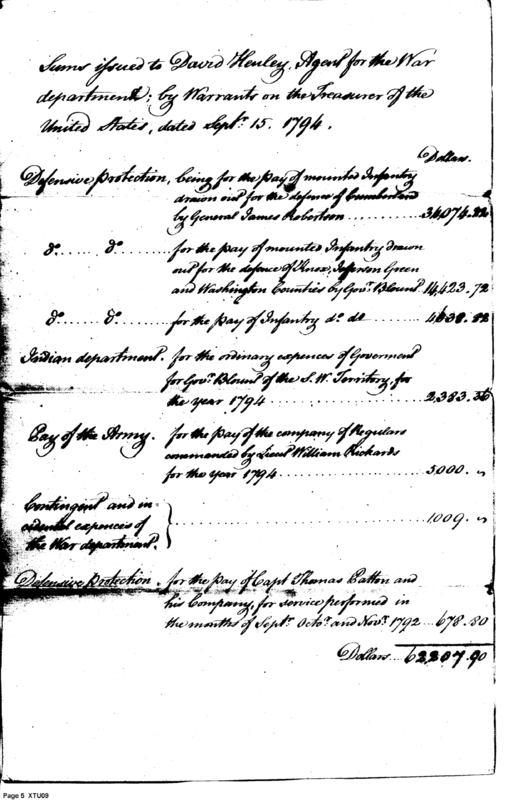 Sums issued to David Henley, Agent for the War
department; by Warrants on the Treasurer of the
United States, dated Septr. 15. 1794.
Dollars.
Defensive protection, being for the pay of mounted Infantry
drawn out for the defence of Cumberland
by General James Robertson .......... 34,074.22
do. ...... do. ...... for the pay of mounted Infantry drawn
out for the defence of Knox, Jefferson Green
and Washington Counties by Govr. Blount 14,423.72
do. ...... do. ...... for the pay of Infantry do. do ........ 4638.82
Indian department. for the ordinary expences of Goverment
for Govr. Blount of the S.W. Territory, for
the year 1794 .................. 2,383.36
Pay of the Army. for the pay of the company of Regulars
commanded by Lieut William Rickards
for the year 1794 .................. 5000. "
Contingent and in-
cidental expences of } .................. 1009. "
the War department.
Defensive protection. for the pay of Capt Thomas Patton and
his Company, for service performed in
the months of Septr. Octor. and Novr. 1792 ... 678.80
Dollars ... 62207.90
Page 5 XTU09